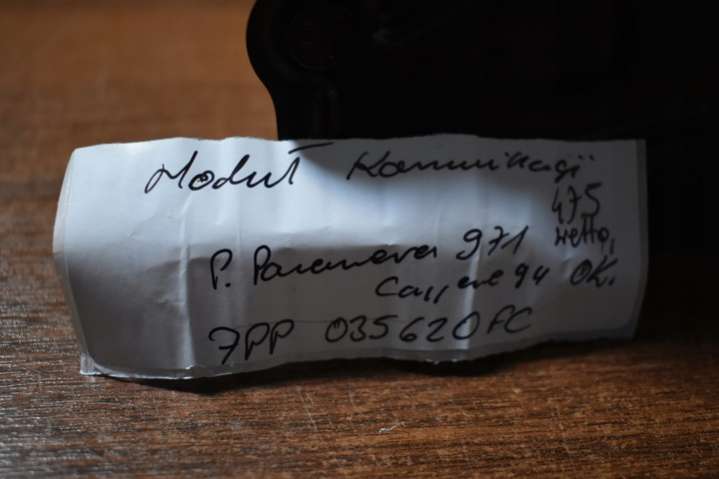 Moduł Komunikacji
475
netto,
P. Panamera 971
Cayenne 94 OK.
7PP 035620FC